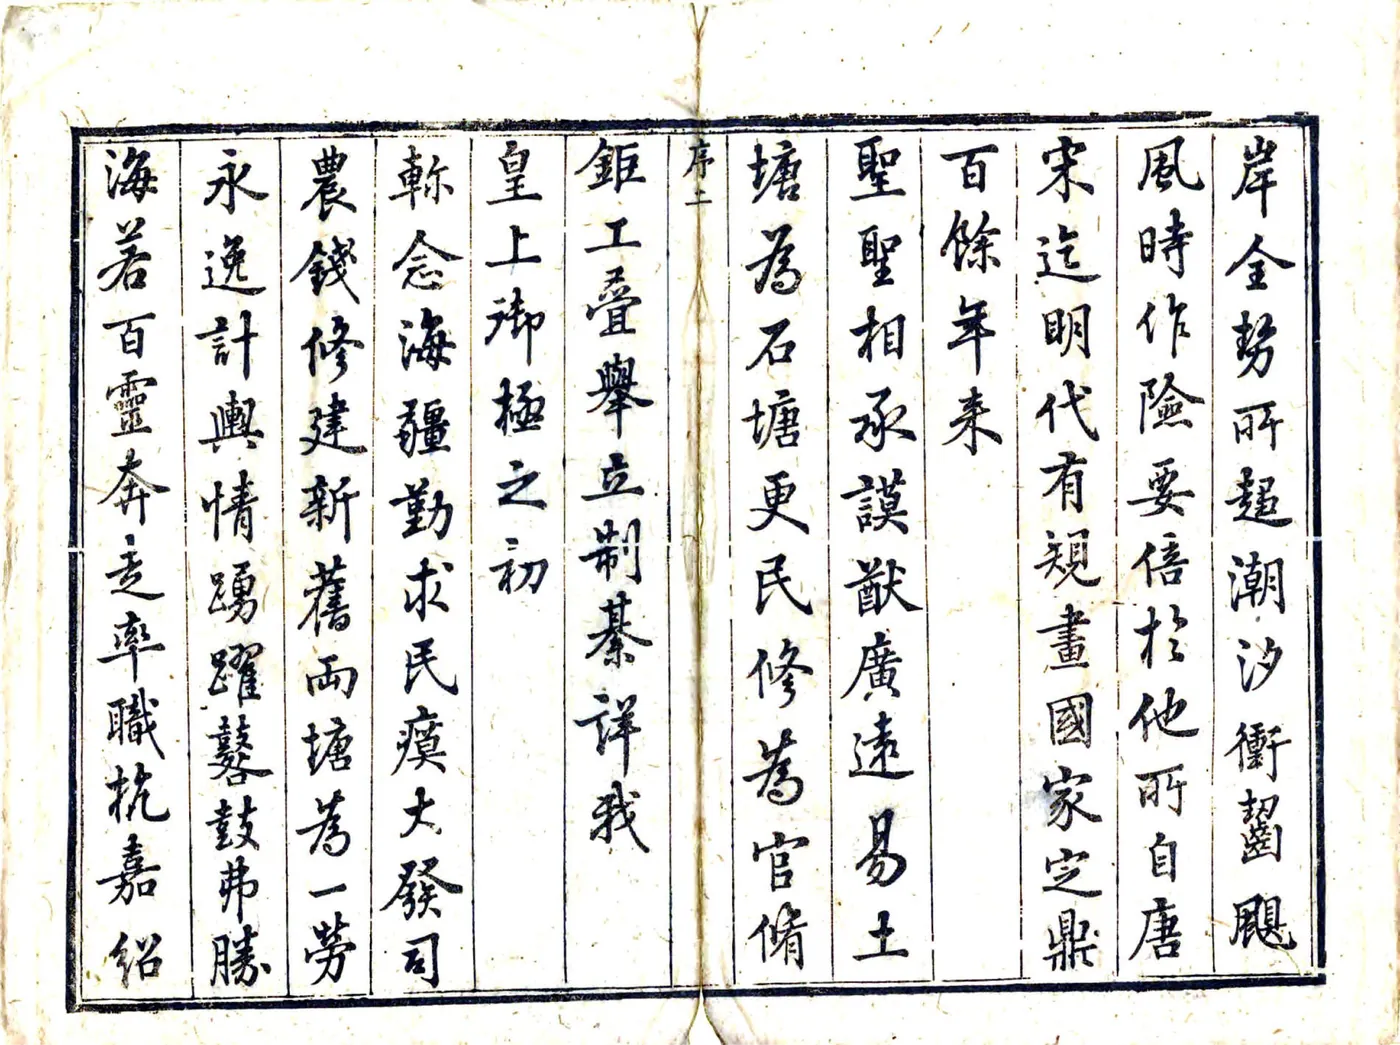 岸全勢所趨潮汐衝齧颶
風時作險要倍於他所自唐
宋迄明代有規畫國家定鼎
百餘年来
聖聖相承謨猷廣遠易土
塘為石塘更民修為官脩
序二
鉅工疊舉立制綦詳我
皇上御極之初
軫念海疆勤求民瘼大發司
農錢修建新舊兩塘為一勞
永逸計輿情踴躍鼛鼓弗勝
海若百靈奔走率職杭嘉紹